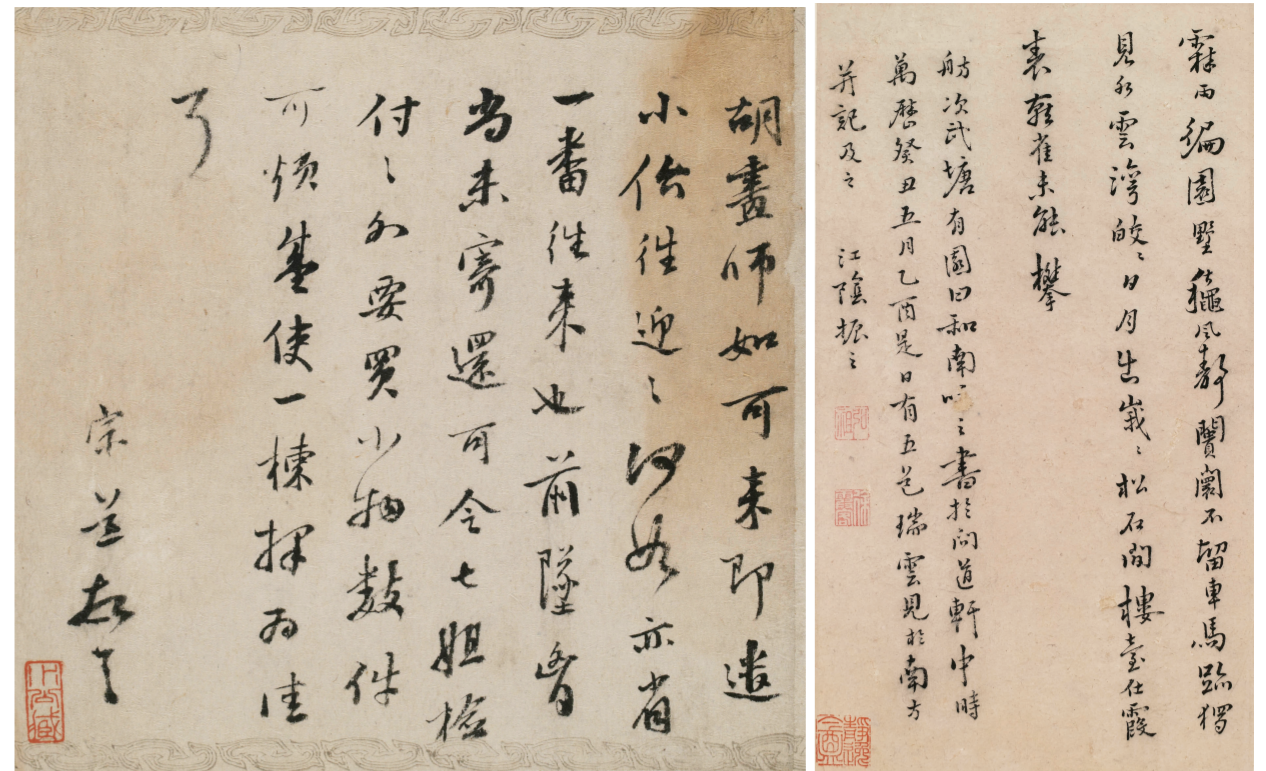 胡畫師如可来即遣
小价往迎〻何如亦省
一番往来也前墜胷
尚未寄還可令七姐檢
付〻外要買小物數件
可煩盛使一棟擇為佳
了
宗道啟事
卞公藏
霖雨徧園墅風静闤闠不留車馬跡獨
見水雲灣皎〻日月出峩〻松石間樓臺仕霞
表雞雀未能攀
舫次武塘有園曰和南〻書於问道軒中時
萬歷癸丑五月乙酉是日有五色瑞雲見於南方
并記及之 江陰振之